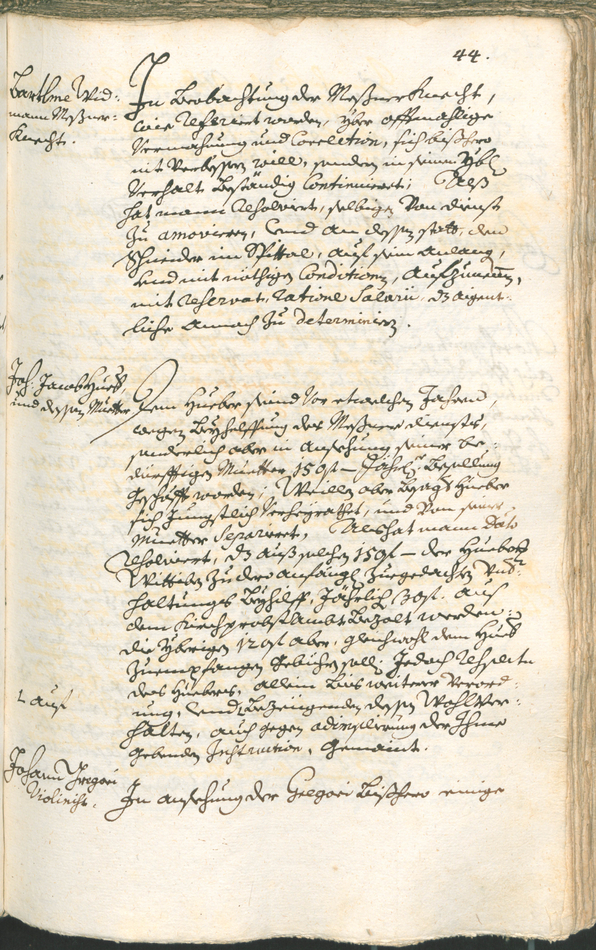 44.
Bartlme Wid-
mann Meßner-
Knecht.
In Beobachtung der Meßner Knecht,
wie referiert worden, yber offtmahlige
Vermahnung und Correction, sich bißhero
nit Verbessern will, sonden in seinem ybl
Verhalt beständig Continuiert; Alß
hat mann resolviert, selbigen von dienst
zu amovieren, Und an dessen statt, den
Schneider im Spittal, auf sein anlang,
Und mit nöthigen Conditionen, aufzunemen,
mit reservat, ratione Salarii, dz aigent-
liche annoch zu determiniern.
Joh: Jacob Hueb
und dessen Muetter
Dem Hueber seind vor etwelchen Jahren,
wegen Beyhelffung des Meßnere diensts,
sonderlich aber in ansehung seiner be-
dürfftigen Muetter 150 fl — Jährl: Besollung
geschöfft worden; Weillen aber besagter Hueber
sich Jüngstlich Verheyrathet, und von seiner
Muetter Separiert, Alß hat mann dato
resolviert, dz auß solchen 150 fl — der Hueberin
Wittiben zu dero anfängl. zuegedachten Unter-
haltungs Beyhilff, Jährlich 30 fl. auß
dem Kirchprobstambt bezalt werden:
die yberigen 120 fl aber, gleichwohl dem Hueb
zuempfangen gebühren soll; Jedoch respectu
des Huebers, allein bis weiterer Verord-
nung, Und bezeugenden dessen Wohlver-
halten, auch gegen adimplierung der Ihme
gebenden Instruction, gemaint.
Johann Gregori
Violinist.
In ansehung der Gregori bißhero einige